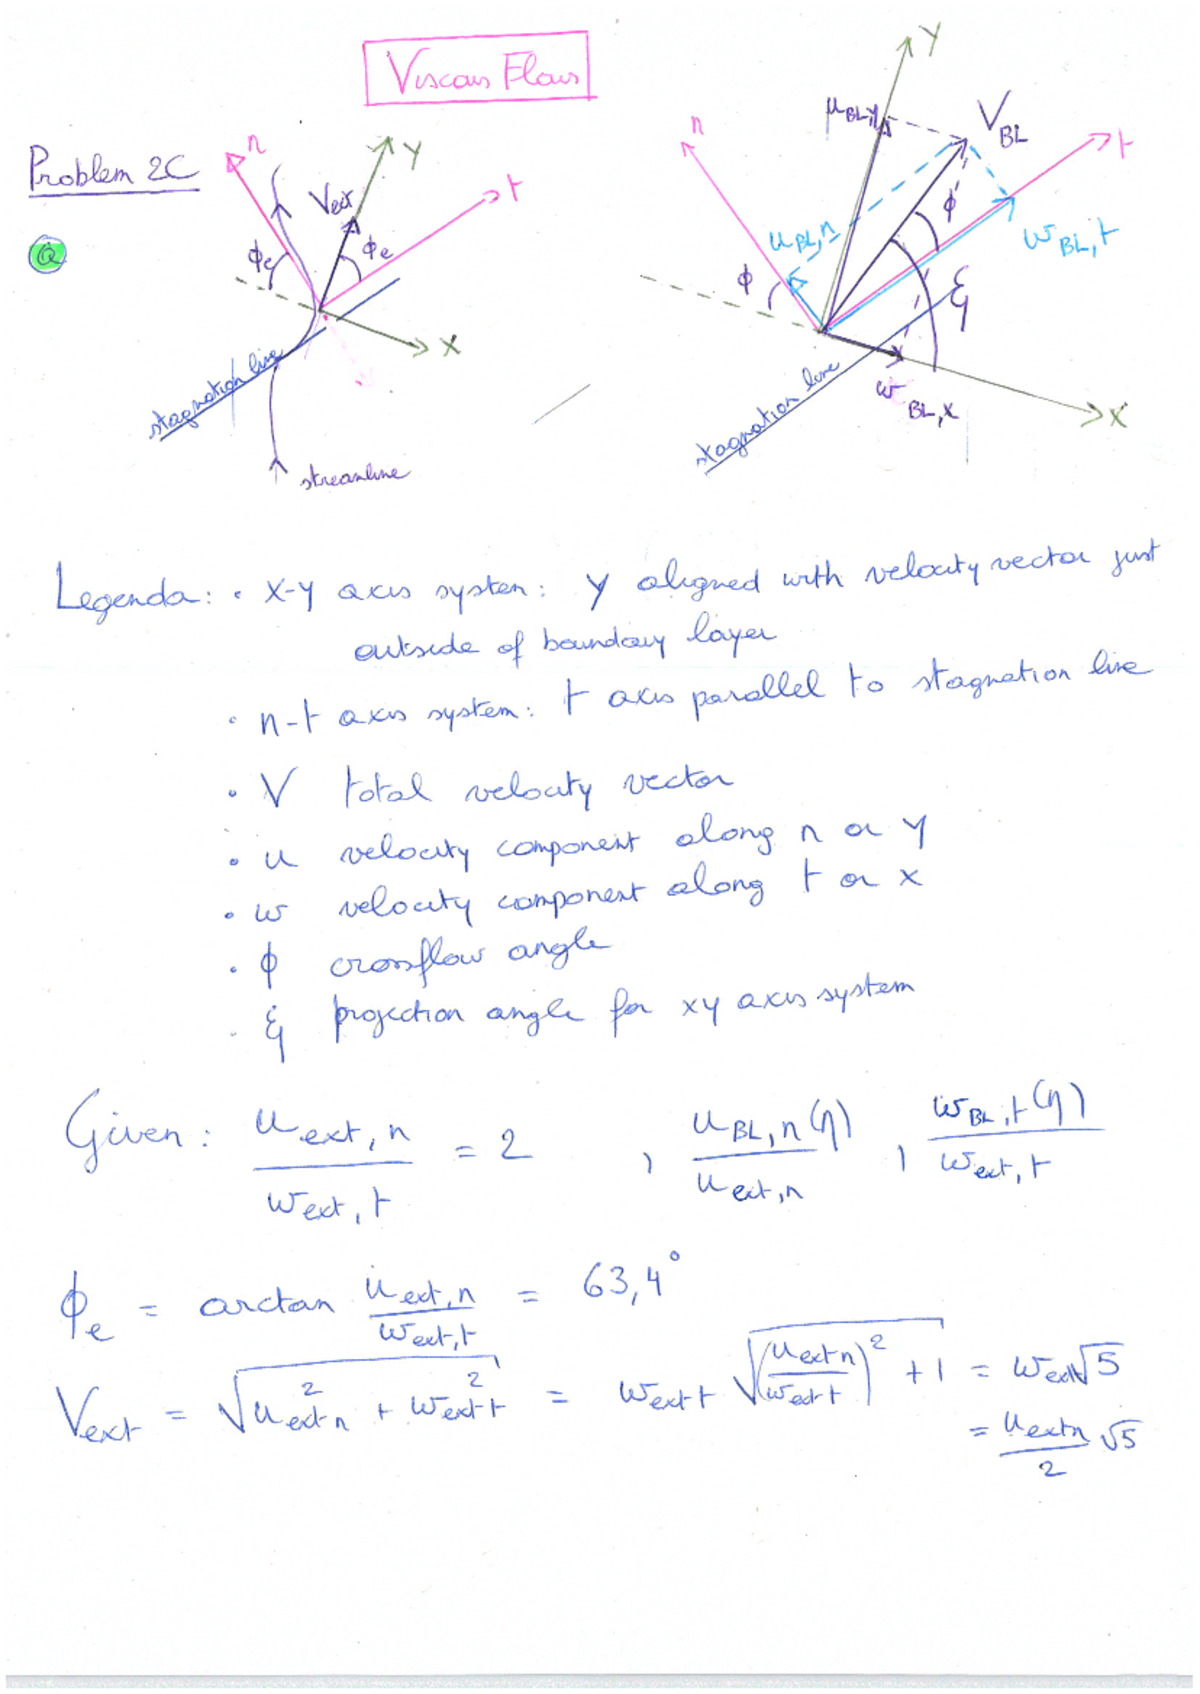 Viscous Flows
Problem 2C
a
n
Vext
Y
t
ϕe
ϕe
X
stagnation line
streamline
Y
μBL,y
VBL
n
t
ϕ
uBL,n
wBL,t
ϕ
ξ
wBL,x
stagnation line
X
Legenda: • X-Y axis system: Y aligned with velocity vector just
outside of boundary layer
• n-t axis system: t axis parallel to stagnation line
• V total velocity vector
• u velocity component along n or Y
• w velocity component along t or x
• ϕ crossflow angle
• ξ projection angle for xy axis system
Given: uext,n / wext,t = 2 , uBL,n(η) / uext,n , wBL,t(η) / wext,t
ϕe = arctan uext,n / wext,t = 63,4°
Vext = √(u²ext n + w²ext t) = wext t √((uext n / wext t)² + 1) = wext √5
= uext n / 2 √5